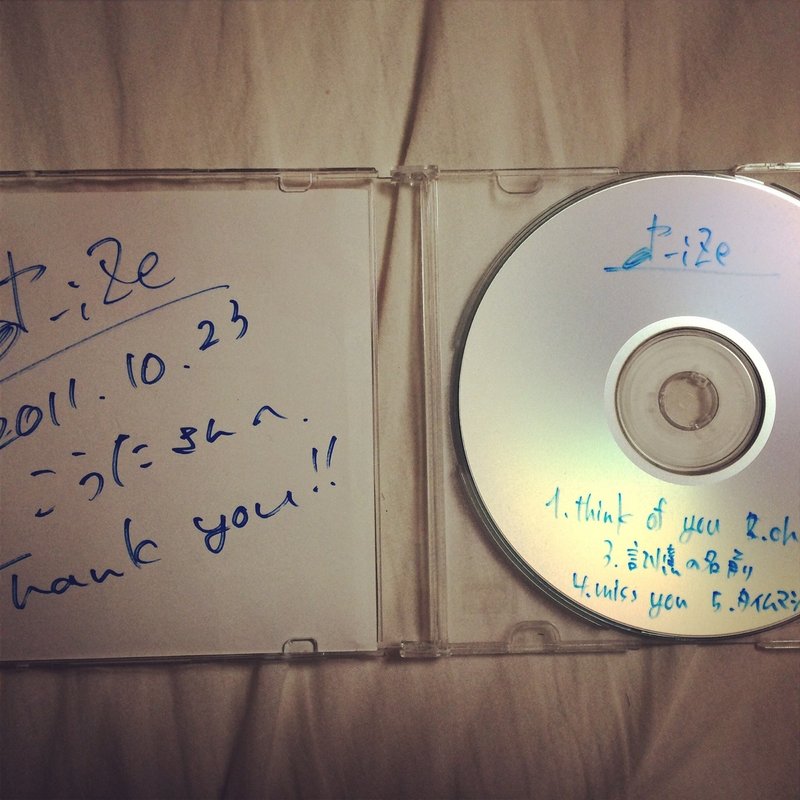 -iZe
2011.10.23
こうたさんへ.
Thank you!!
-iZe
1.think of you 2.ch
3.記憶の名前
4.miss you 5.タイムマシ